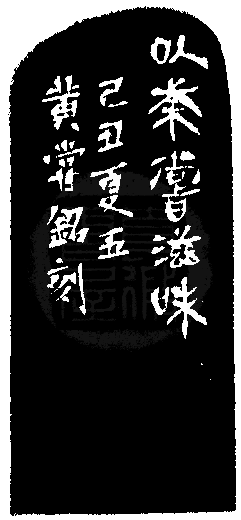 以業嘗滋味
己丑夏五
黄嘗銘刻